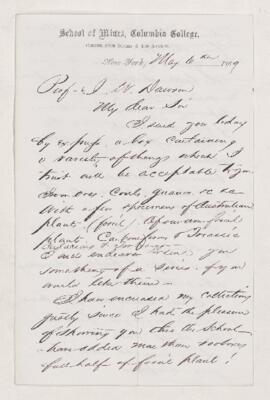 School of Mines, Columbia College,
New-York, May 6 1879
Prof. J. W. Dawson
My dear Sir
I send you today
by express a box containing
a variety of things which I
trust will be acceptable to you.
Iron ores, coals,
with a few specimens of Australian
plants (fossil). A few
plants Carboniferous & Triassic
I will endeavor to send you
something of a series if you
would like them
I have increased my collections
greatly since I had the pleasure
of showing you thro the School
have added more than
full half of fossil plants!